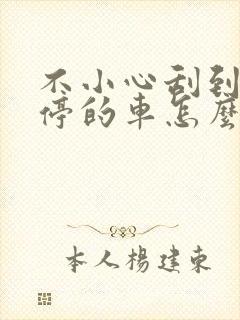 不小心刮到
停的車怎麼
本人楊建東